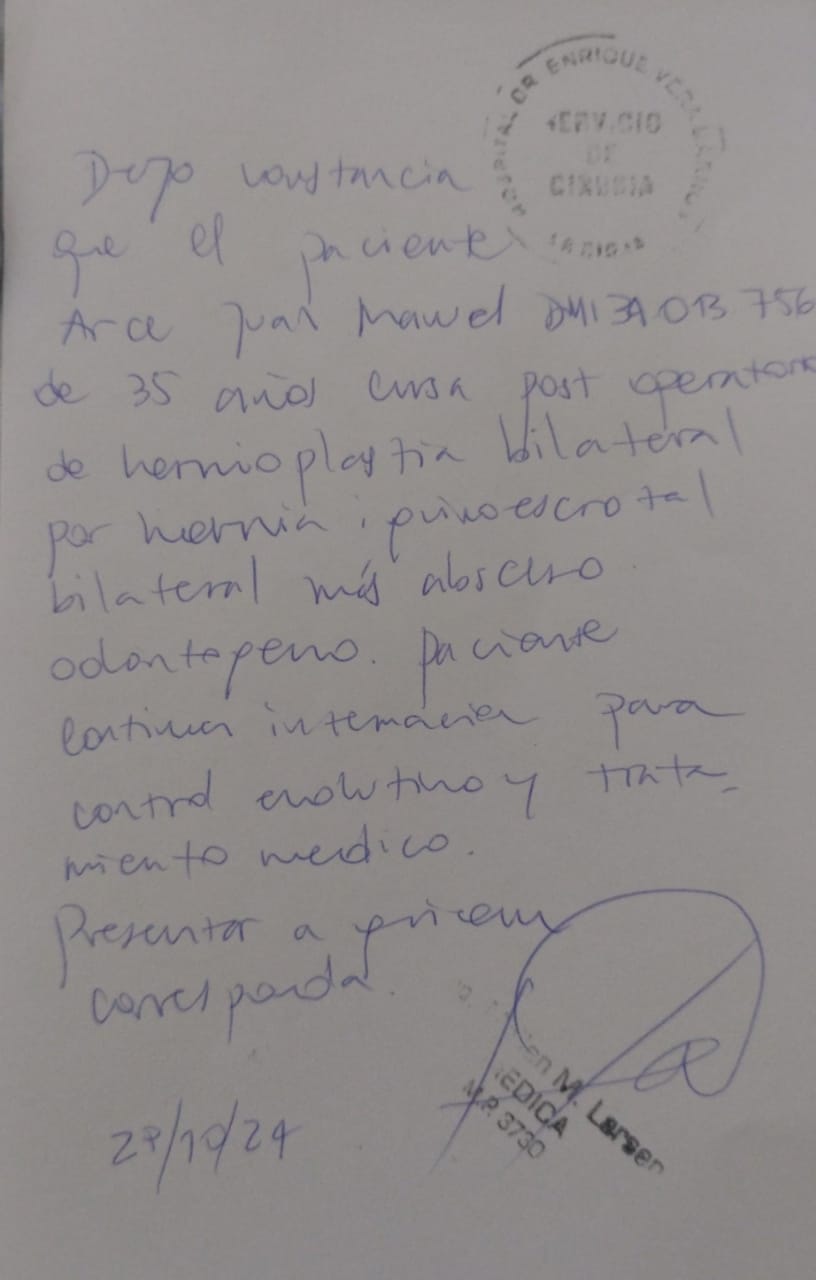 HOSPITAL DR ENRIQUE VERA
SERVICIO
DE
CIRUGIA
Dejo constancia
que el paciente
Arce Juan Manuel DNI 34 013 756
de 35 años cursa post operatorio
de hernioplastia bilateral
por hernia inguinoescrotal
bilateral más absceso
odontogeno. paciente
continua internacion para
control evolutivo y trata-
miento medico.
Presentar a quien
corresponda.
M. Larsen
MEDICA
M.P. 3730
/10/24